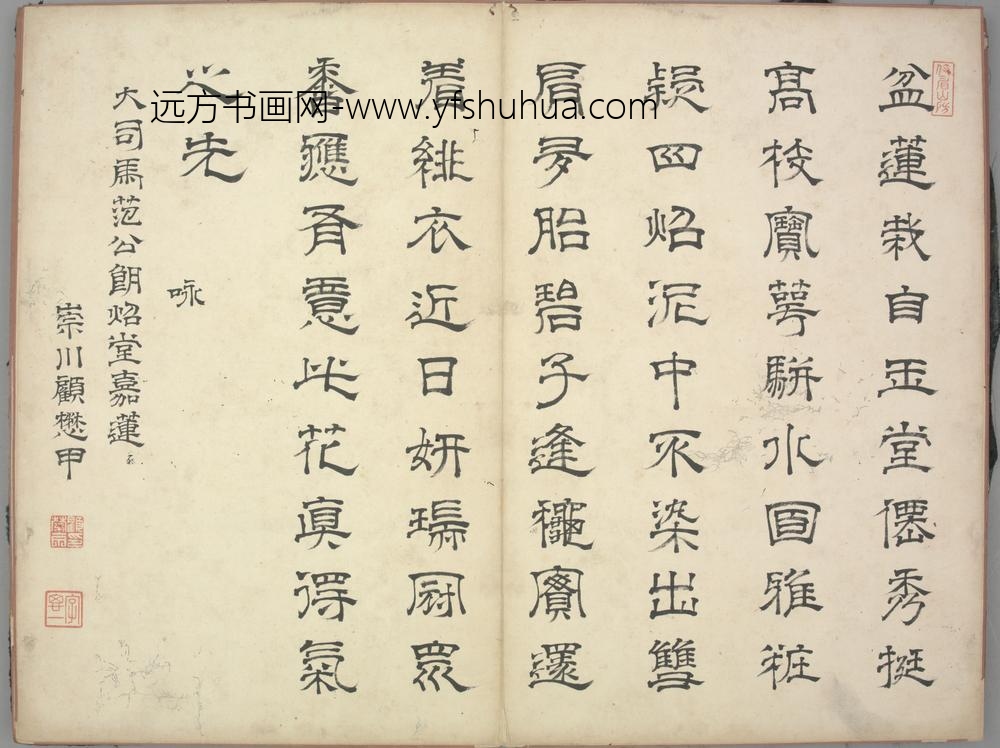 盆蓮栽自玉堂僊秀挺
高枝寶萼駢水國雅粧
四炤泥中不染出雙
肩多胎碧子逢龝實還
着緋衣近日妍瑞冠眾
香應有意此花真得氣
之先
咏
大司馬范公朗炤堂嘉蓮
崇川顧懋甲
远方书画网-www.yfshuhua.com